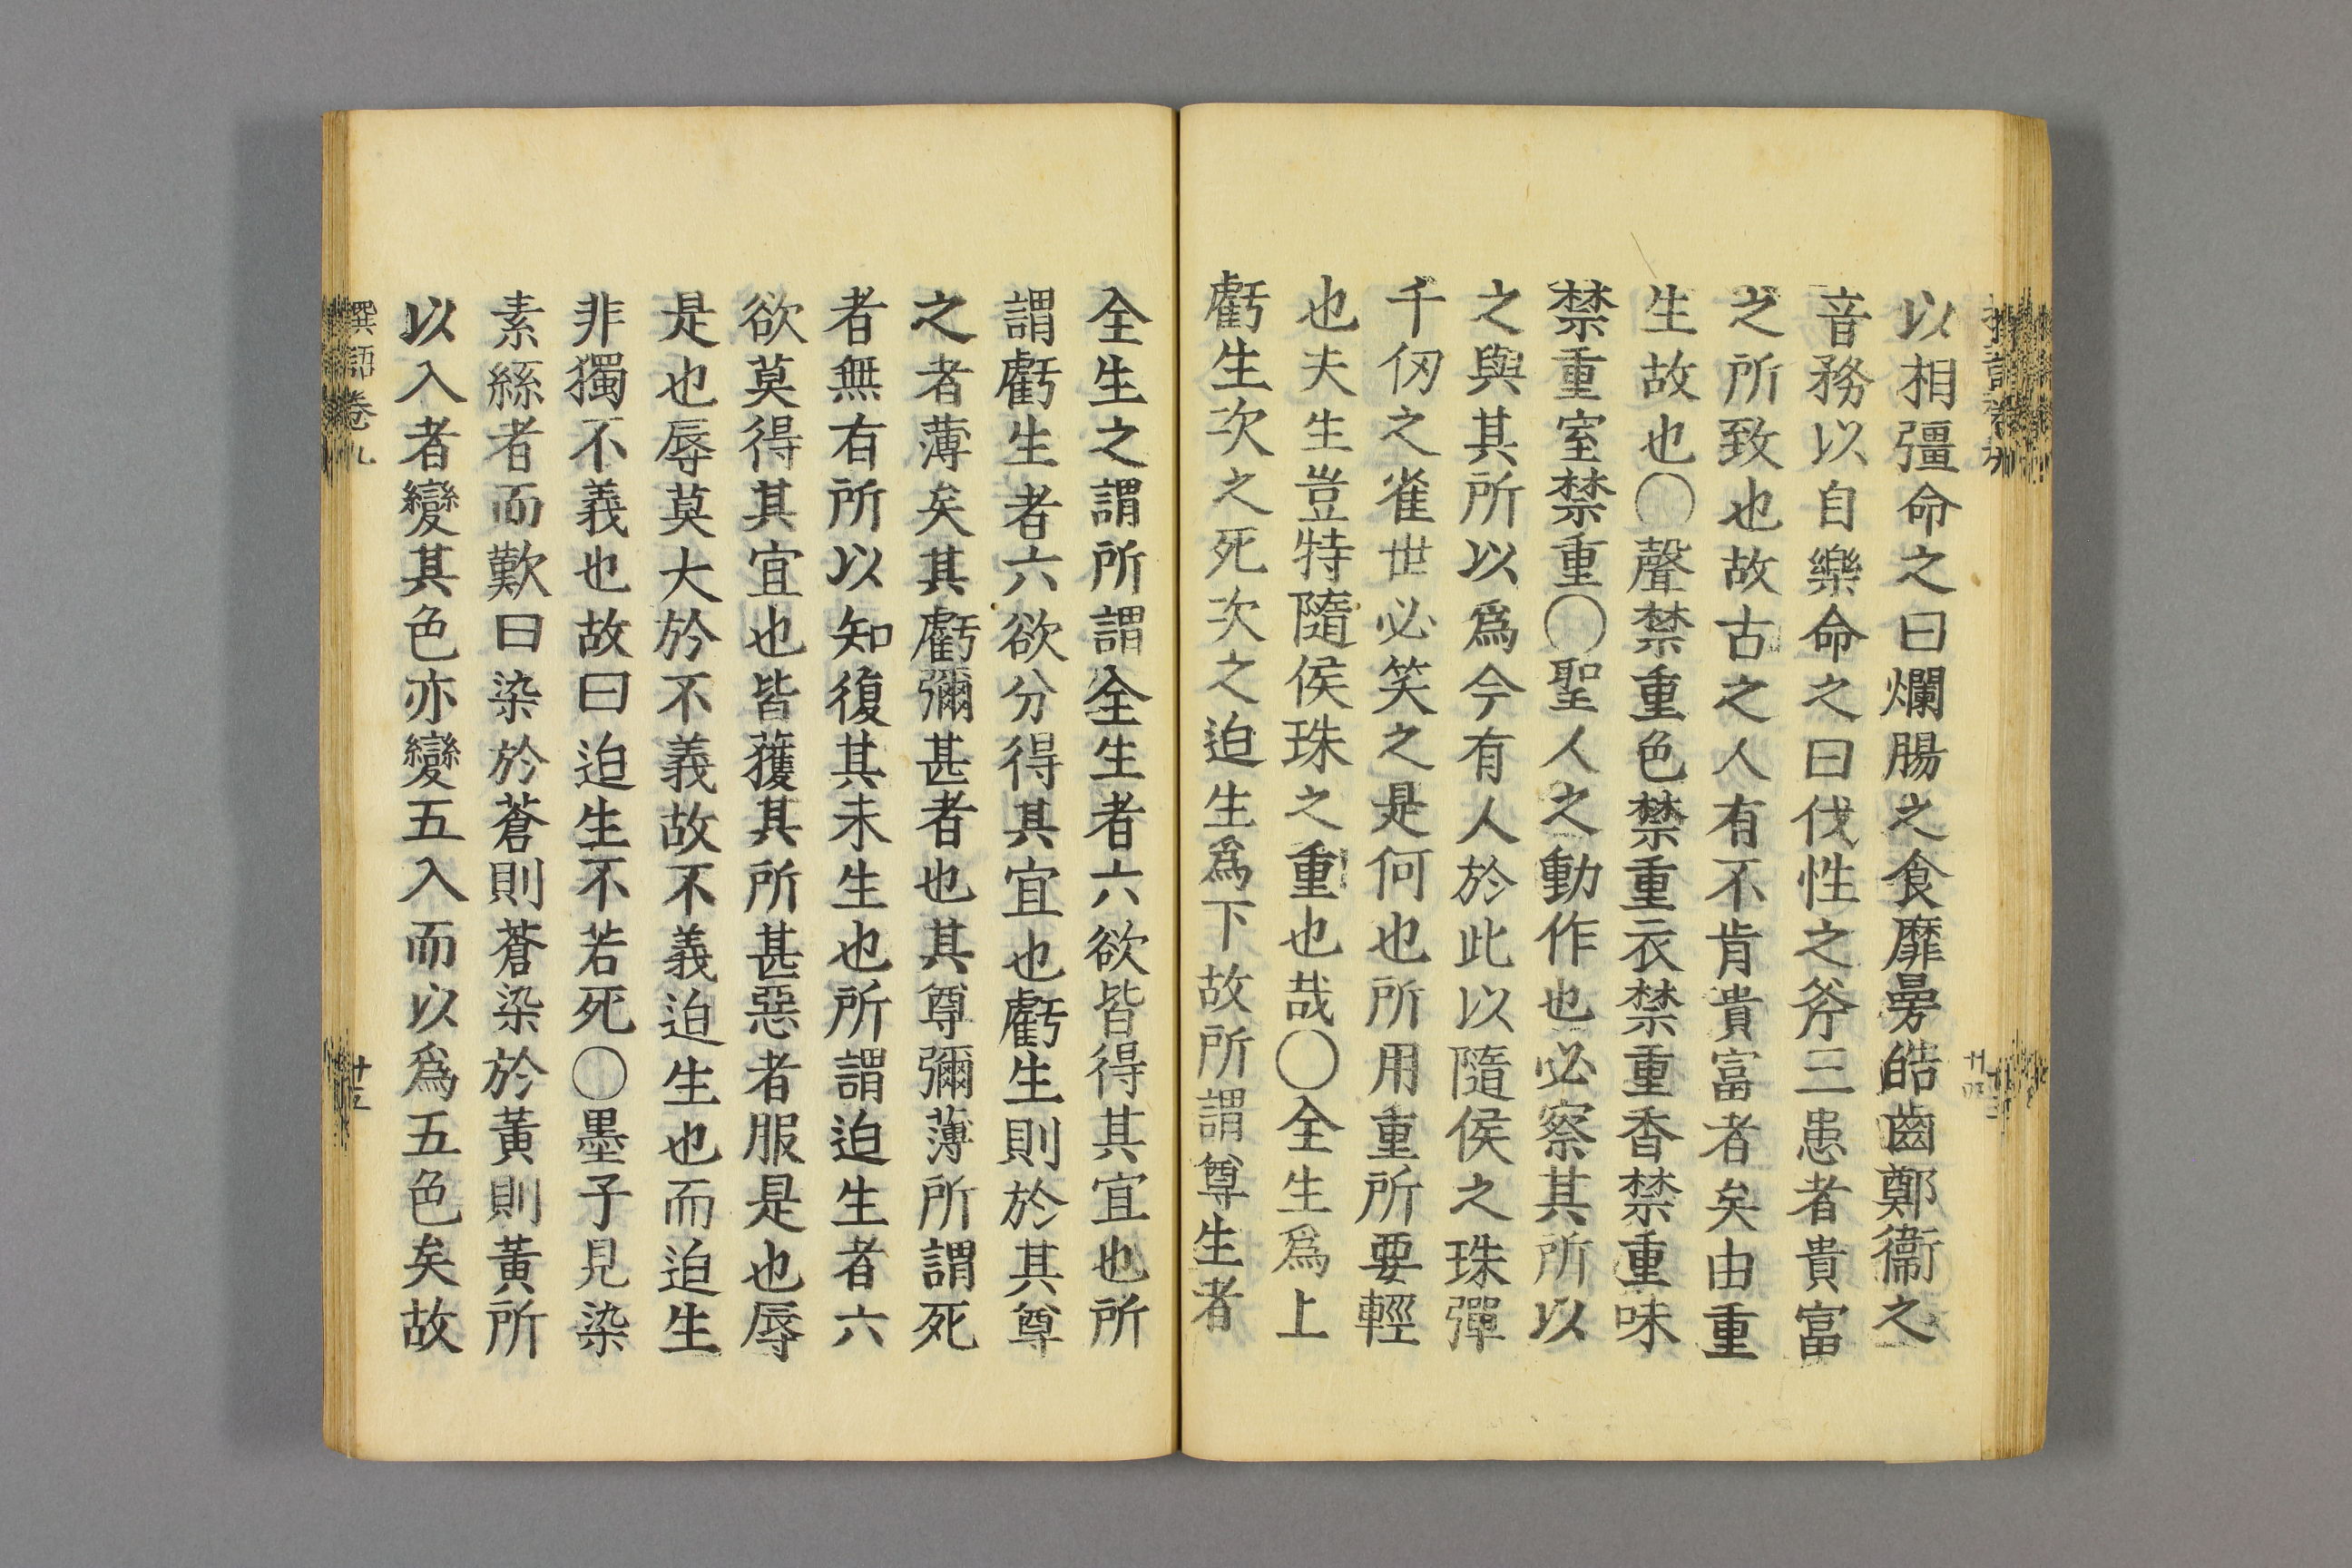 以相彊命之曰爛腸之食靡曼皓齒鄭衞之
音務以自樂命之曰伐性之斧三患者貴富
之所致也故古之人有不肯貴富者矣由重
生故也〇聲禁重色禁重衣禁重香禁重味
禁重室禁重〇聖人之動作也必察其所以
之與其所以爲今有人於此以隨侯之珠彈
千仞之雀世必笑之是何也所用重所要輕
也夫生豈特隨侯珠之重也哉〇全生爲上
虧生次之死次之迫生爲下故所謂尊生者
全生之謂所謂全生者六欲皆得其宜也所
謂虧生者六欲分得其宜也虧生則於其尊
之者薄矣其虧彌甚者也其尊彌薄所謂死
者無有所以知復其未生也所謂迫生者六
欲莫得其宜也皆獲其所甚惡者服是也辱
是也辱莫大於不義故不義迫生也而迫生
非獨不義也故曰迫生不若死〇墨子見染
素絲者而歎曰染於蒼則蒼染於黃則黃所
以入者變其色亦變五入而以爲五色矣故
撰語卷九